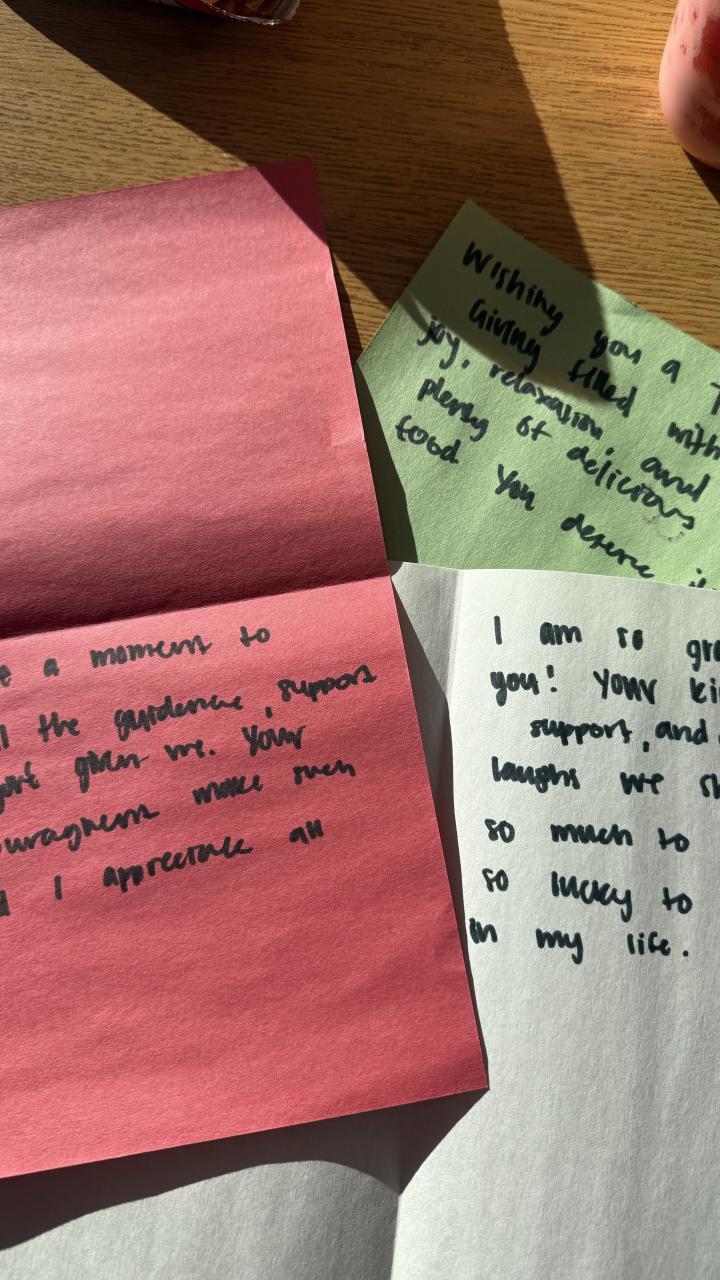 Wishing you a T
Giving filled with
joy, relaxation, and
plenty of delicious
food You deserve i
e a moment to
l the guidence, support
port given me. Your
ouragment make such
d I appreciate all
I am so gra
you! Your ki
support, and
laughs we sh
so much to
so lucky to
in my life.